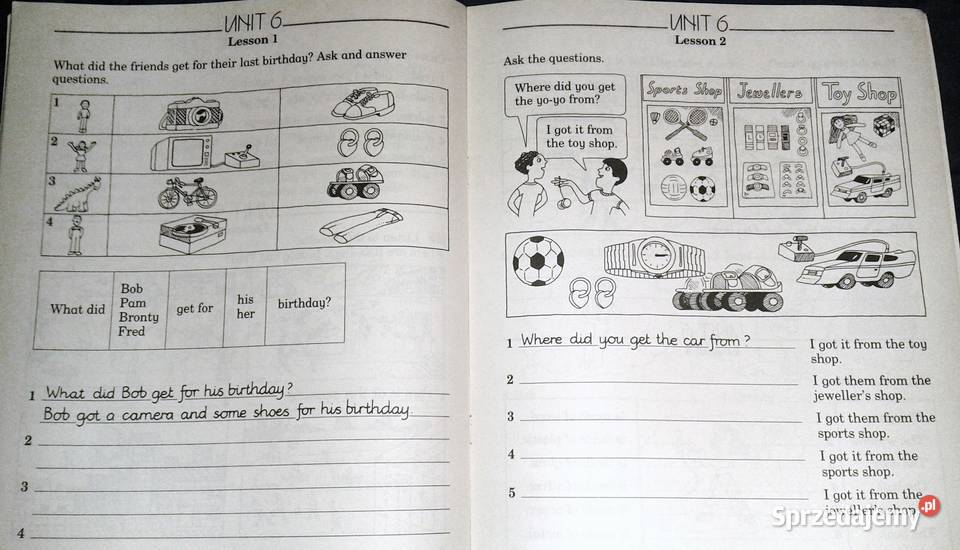 UNIT 6
Lesson 1
What did the friends get for their last birthday? Ask and answer
questions.
1
2
3
4
What did
Bob
Pam
Bronty
Fred
get for
his
her
birthday?
1 What did Bob get for his birthday?
Bob got a camera and some shoes for his birthday.
2
3
4
UNIT 6
Lesson 2
Ask the questions.
Where did you get
the yo-yo from?
I got it from
the toy shop.
Sports Shop
Jewellers
Toy Shop
1 Where did you get the car from?
I got it from the toy
shop.
2
I got them from the
jeweller's shop.
3
I got them from the
sports shop.
4
I got it from the
sports shop.
5
I got it from the
jeweller's shop.
Sprzedajemy.pl